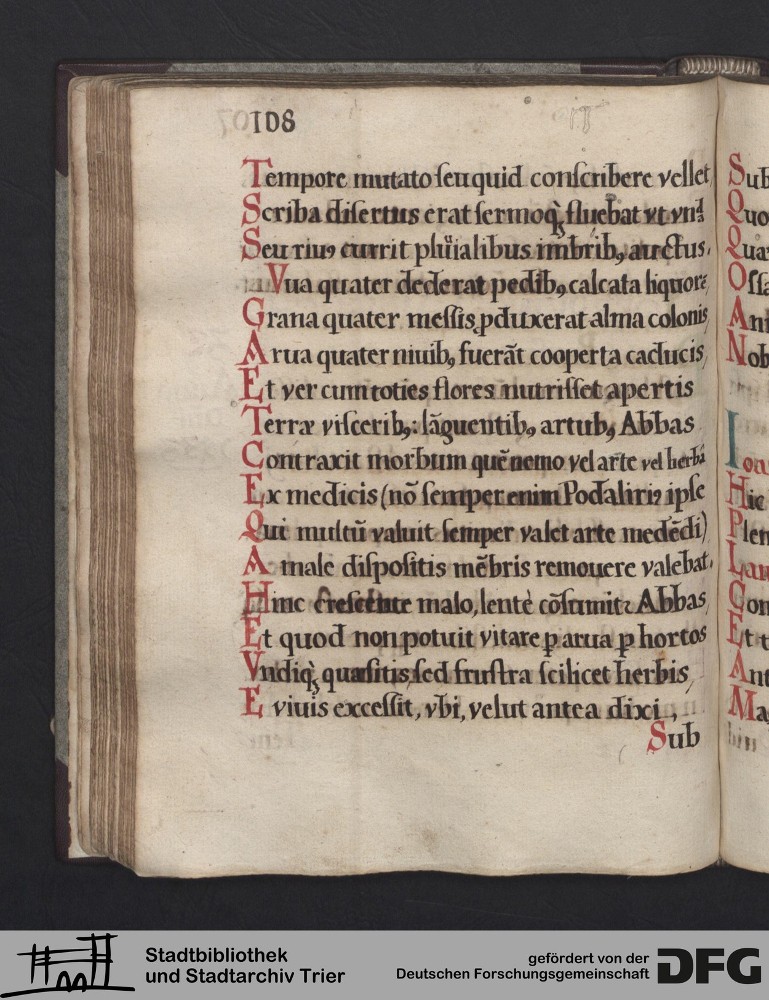 108
Tempore mutato ſeu quid conſcribere vellet,
Scriba diſertus erat ſermoq̨̀ fluebat vt vnd̃
Seu riuꝰ currit plüialibus imbribꝫ auctus.
Vua quater dederat pedibꝫ calcata liquorẽ,
Grana quater meſſis ꝓduxerat alma colonis,
Arua quater niuibꝫ fuerãt cooperta caducis,
Et ver cum toties flores nutriſſet apertis
Terræ viſceribꝫ: lãguentibꝫ artubꝫ Abbas
Contraxit morbum quẽ nemo vel arte vel herbã
Ex medicis (nõ ſemper enim Podaliriꝰ ipſe
Qui multũ valuit ſemper valet arte medẽdi)
A male diſpoſitis mẽbris remouere valebat.
Hinc creſcente malo, lentè cõſumitꝛ Abbas,
Et quod non potuit vitare ꝑ arua ꝑ hortos
Vndiq̨̀ quæſitis, ſed fruſtra ſcilicet herbis,
E viuis exceſſit, vbi, velut antea dixi,
Sub
Stadtbibliothek
und Stadtarchiv Trier
gefördert von der
Deutschen Forschungsgemeinschaft
DFG